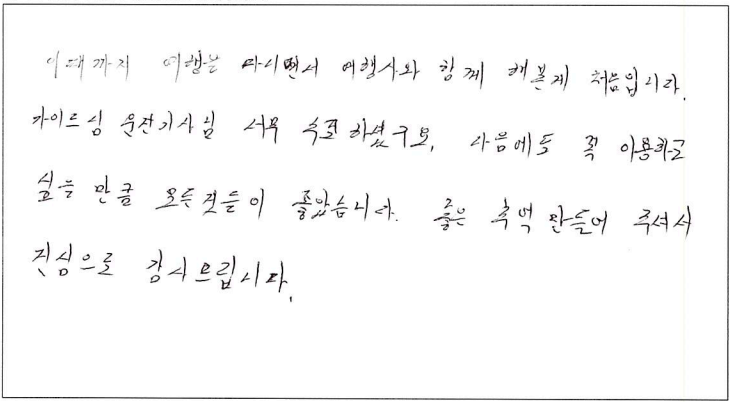 이때까지 여행을 다니면서 여행사와 함께 해본게 처음입니다.
가이드님 운전기사님 너무 수고하셨구요, 다음에도 꼭 이용하고
싶을 만큼 모든것들이 좋았습니다. 좋은 추억 만들어 주셔서
진심으로 감사드립니다.